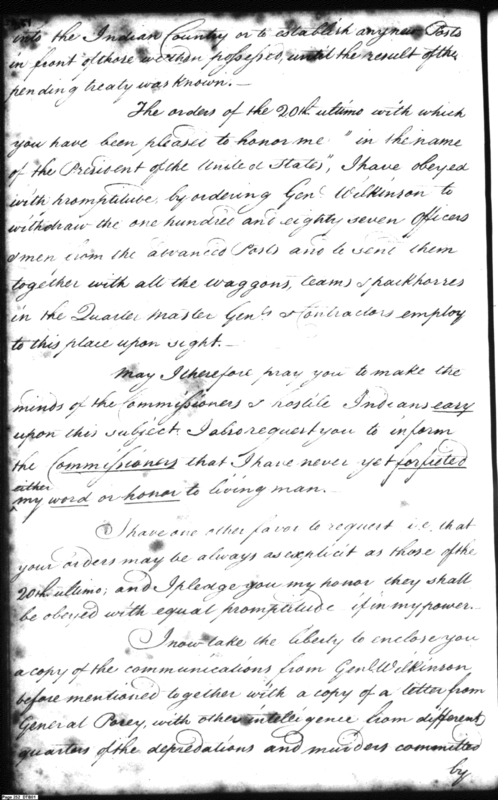 into the Indian Country or to establish any new Posts
in front of those we then possessed, until the result of the
pending treaty was known.—
The orders of the 20th ultimo with which
you have been pleased to honor me "in the name
of the President of the United States", I have obeyed
with promptitude, by ordering Genl. Wilkinson to
withdraw the one hundred and eighty seven Officers
& men from the advanced Posts and to send them
together with all the waggons, teams & packhorses
in the Quarter Master Genls. & Contractors employ
to this place upon sight.—
May I therefore pray you to make the
minds of the Commissioners & hostile Indians easy
upon this subject. I also request you to inform
the Commissioners that I have never yet forfeited
either
my word or honor to living man.—
I have one other favor to request i.e. that
your orders may be always as explicit as those of the
20th ultimo; and I pledge you my honor they shall
be obeyed with equal promptitude if in my power.
I now take the liberty to enclose you
a copy of the communications from Genl. Wilkinson
before mentioned together with a copy of a letter from
General Posey, with other intelligence from different
quarters of the depredations and murders committed
by